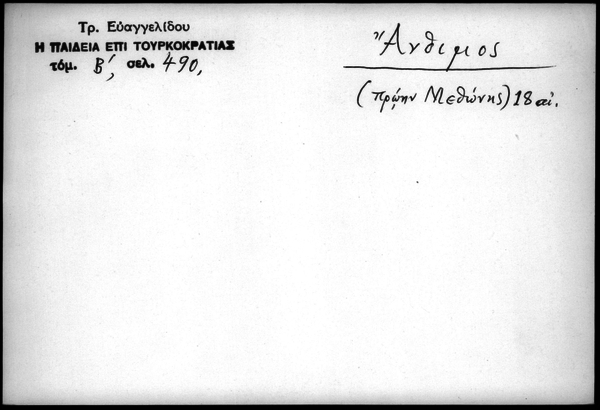 Τρ. Εὐαγγελίδου
Η ΠΑΙΔΕΙΑ ΕΠΙ ΤΟΥΡΚΟΚΡΑΤΙΑΣ
τόμ. Β΄, σελ. 490,
Ἄνθιμος
(πρώην Μεθώνης) 18 αἰ.